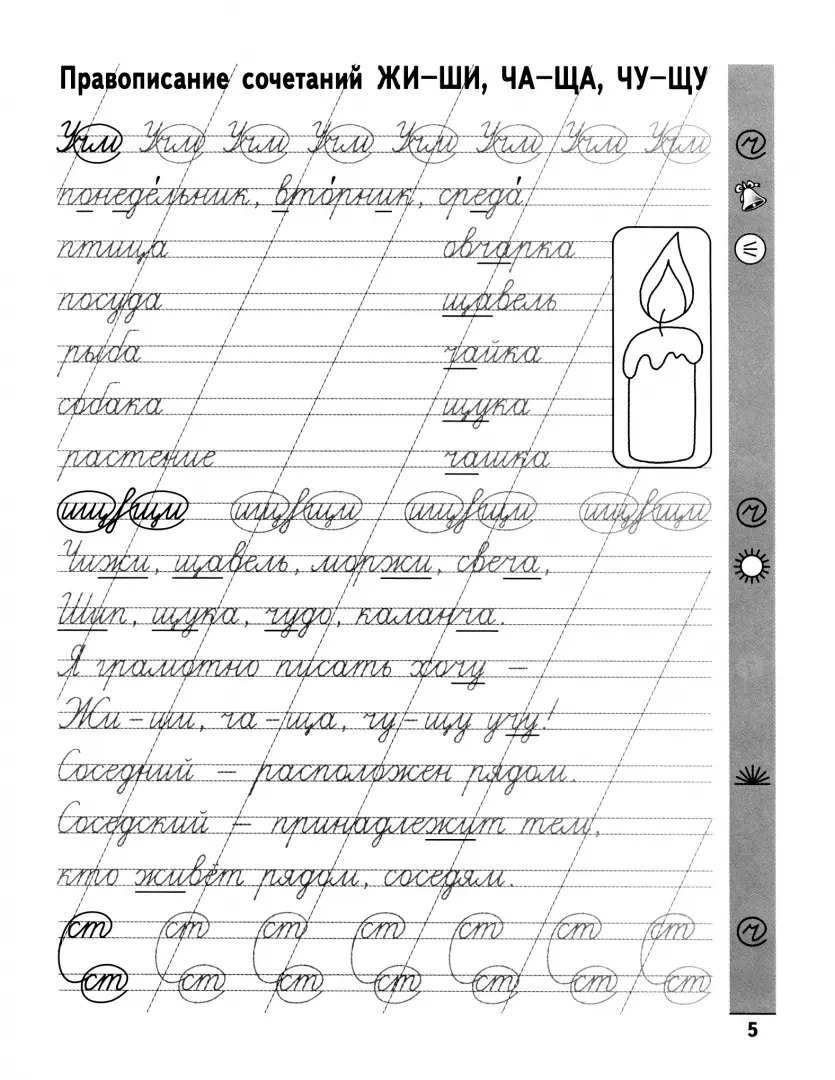 Правописание сочетаний ЖИ–ШИ, ЧА–ЩА, ЧУ–ЩУ
понеде́льник, вто́рник, среда́
птица овчарка
посуда щавель
рыба чайка
собака щука
растение чашка
Чижи, щавель, моржи, свеча,
Шип, щука, чудо, каланча.
Я грамотно писать хочу –
Жи – ши, ча – ща, чу – щу учу!
Соседний – расположен рядом.
Соседский – принадлежит тем,
кто живёт рядом, соседям.
ст ст ст ст ст ст ст
ст ст ст ст ст ст ст
5